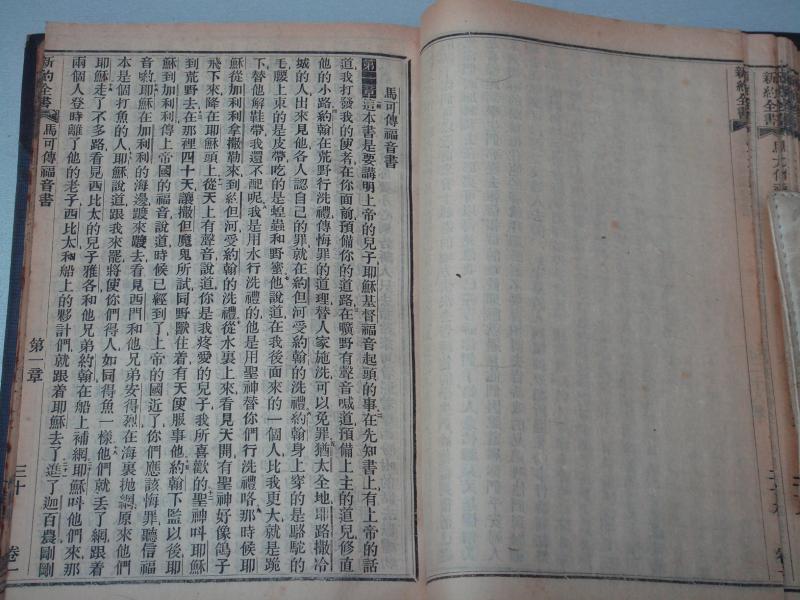 馬可傳福音書
第一章這本書是要講明上帝的兒子耶穌基督福音起頭的事在先知書上有上帝的話
道我打發我的使者在你面前預備你的道路在曠野有聲音喊道預備上主的道兒修直
他的小路約翰在荒野行洗禮傳悔罪的道理替人家施洗可以免罪猶太全地耶路撒冷
城的人出來見他各人認自己的罪就在約但河受約翰的洗禮約翰身上穿的是駱駝的
毛腰上束的是皮帶吃的是蝗蟲和野蜜他說道在我後面來的一個人比我更大就是跪
下替他解鞋帶我還不配呢我是用水行洗禮的他是用聖神替你們行洗禮咯那時候耶
穌從加利利拿撒勒來到約但河受約翰的洗禮從水裏上來看見天開有聖神好像鴿子
飛下來降在耶穌頭上從天上有聲音說道你是我疼愛的兒子我所喜歡的聖神叫耶穌
到荒野去在那裡四十天讓撒但魔鬼所試同野獸住着有天使服事他約翰下監以後耶
穌到加利利傳上帝國的福音說道時候已經到了上帝的國近了你們應該悔罪聽信福
音喲耶穌在加利利的海邊踱來踱去看見西門和他兄弟安得烈在海裏拋網原來他們
本是個打魚的人耶穌說道跟我來罷將使你們得人如同得魚一樣他們就丟了網跟着
耶穌走了不多路看見西比太的兒子雅各和他兄弟約翰在船上補網耶穌叫他們來那
兩個人登時離了他的老子西比太和船上的夥計們就跟着耶穌去了進了迦百農剛剛
新約全書 馬可傳福音書 第一章 三十 卷一
新約全書
新約全書